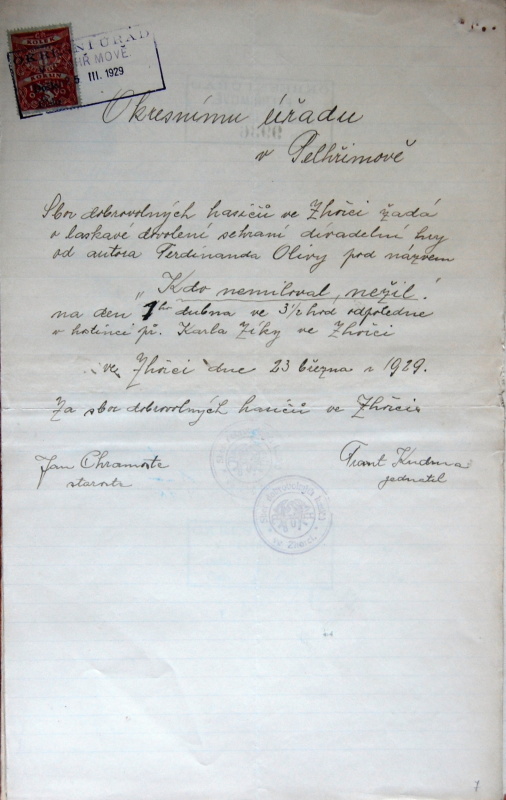 KOLEK
KORUN
OKRESNÍ ÚŘAD
III. 1929
Okresnímu úřadu
v Pelhřimově
Sbor dobrovolných hasičů ve Zhoři žádá
o laskavé dovolení sehrání divadelní hry
od autora Ferdinanda Olivy pod názvem
„Kdo nemiloval, nežil."
na den 1ho dubna ve 3 1/2 hod odpoledne
v hostinci př. Karla Zíky ve Zhoři
ve Zhoři dne 23 března r 1929.
Za sbor dobrovolných hasičů ve Zhoři
Jan Chramosta
starosta
Frant
jednatel
7